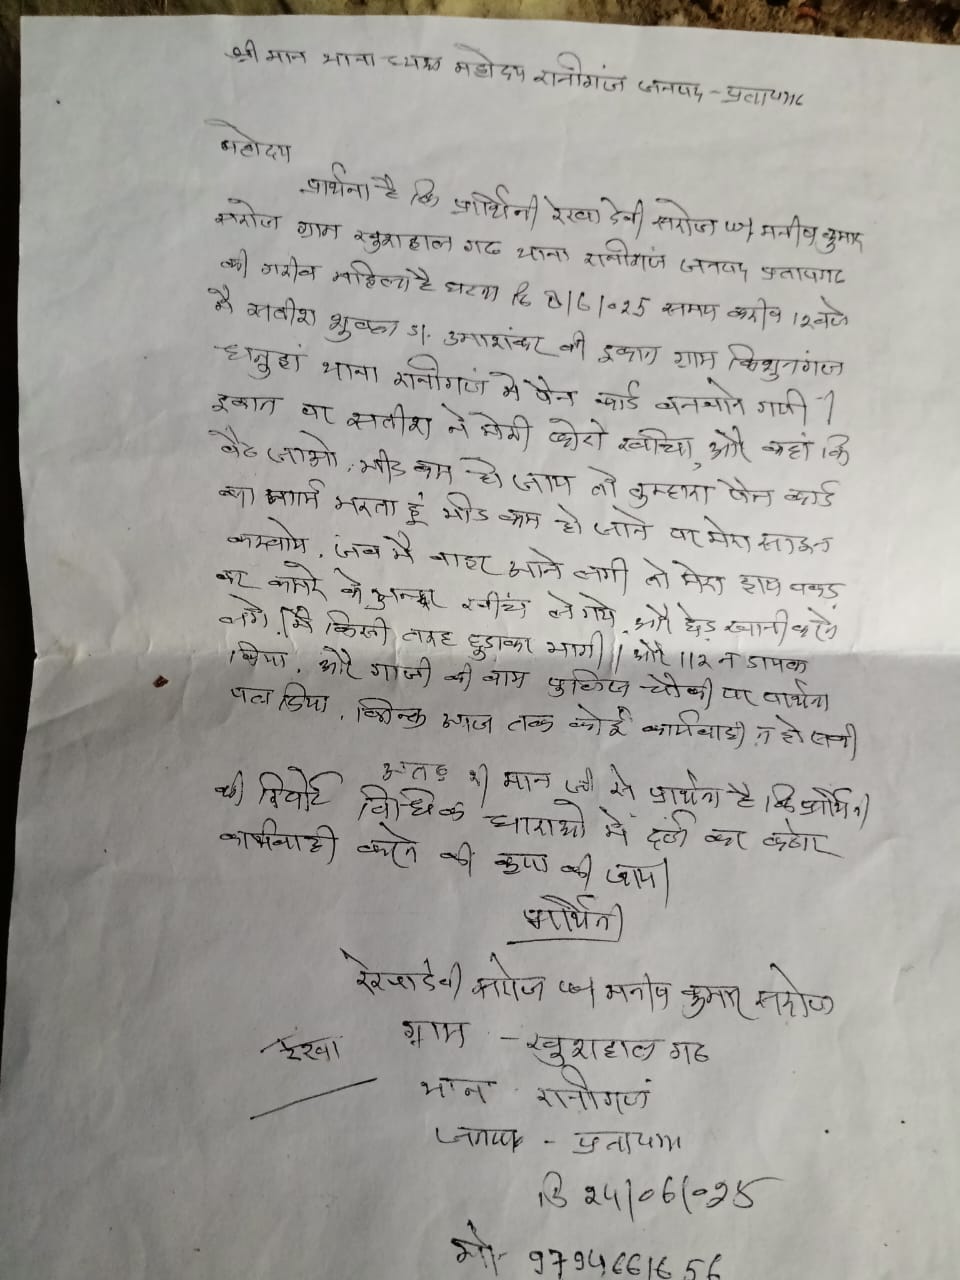 श्री मान थाना ध्यक्ष महोदय रानीगंज जनपद - प्रतापगढ
महोदय
प्रार्थना है कि प्रार्थिनी रेखा देवी सरोज w/ मनीष कुमार
सरोज ग्राम खुशहाल गढ थाना रानीगंज जनपद प्रतापगढ
की गरीब महिला है घटना दि /6/025 समय करीब 12 बजे
मै सतीश शुक्ला s/. उमाशंकर की दुकान ग्राम किशुनगंज
धनुहां थाना रानीगंज मे पेन कार्ड बनवाने गयी ।
दुकान पर सतीश ने मेरी फोटो खींचा, और कहां कि
बैठ जाओ, भीड कम हो जाय तो तुम्हारा पेन कार्ड
का फार्म भरता हूं भीड कम हो जाने पर मेरा साइन
करवाये, जब मै बाहर आने लगी तो मेरा हाथ पकड़
कर कमरे के अन्दर खींच ले गये, और छेड़ खानी करने
लगे, मै किसी तरह छुड़ाकर भागी। और 112 न डायल
किया, और गाजी की बाग पुलिस चौकी पर प्रार्थना
पत्र दिया, किन्तु आज तक कोई कार्यवाही न हो सकी
अतः श्री मान जी से प्रार्थना है कि प्रार्थिनी
की रिपोर्ट विधिक धाराओ में दर्ज कर कठोर
कार्यवाही करने की कृपा की जाय।
प्रार्थिनी
रेखा देवी सरोज w/ मनीष कुमार सरोज
ग्राम - खुशहाल गढ
रेखा
थाना रानीगंज
जनपद - प्रतापगढ
दि 24/06/025
मो- 9794661656